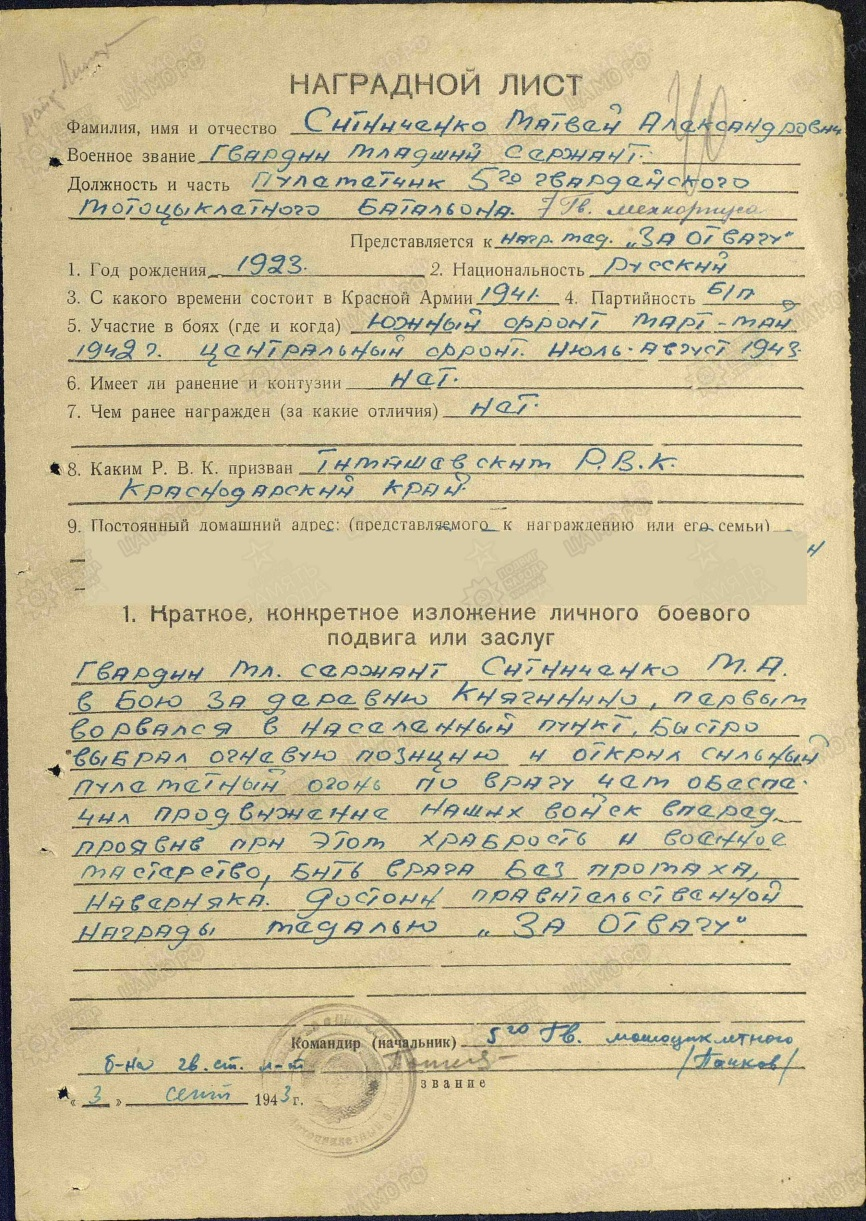 НАГРАДНОЙ ЛИСТ
Фамилия, имя и отчество Ситниченко Матвей Александрович
Военное звание Гвардии младший сержант.
Должность и часть Пулеметчик 5го гвардейского
мотоцыклетного батальона. 7 Гв. мехкорпуса
Представляется к нагр. мед. „ЗА ОТВАГУ“
1. Год рождения 1923. 2. Национальность Русский
3. С какого времени состоит в Красной Армии 1941. 4. Партийность б/п
5. Участие в боях (где и когда) Южный фронт март-май
1942 г. Центральный фронт. Июль-Август 1943.
6. Имеет ли ранение и контузии нет.
7. Чем ранее награжден (за какие отличия) нет.
8. Каким Р. В. К. призван Тимашевским Р.В.К.
Краснодарский край.
9. Постоянный домашний адрес: (представляемого к награждению или его семьи)
1. Краткое, конкретное изложение личного боевого
подвига или заслуг
Гвардии мл. сержант Ситниченко М.А.
в бою за деревню Княгинино, первым
ворвался в населенный пункт, быстро
выбрал огневую позицию и открил сильный
пулеметный огонь по врагу чем обеспе-
чил продвижение наших войск вперед
проявив при этом храбрость и военное
мастерство, бить врага без промаха,
наверняка. Достоин правительственной
награды медалью „ЗА ОТВАГУ“
Командир (начальник) 5го Гв. мотоциклетного
б-на гв. ст. л-т /Пачков/
звание
« 3 » сент 1943 г.
740